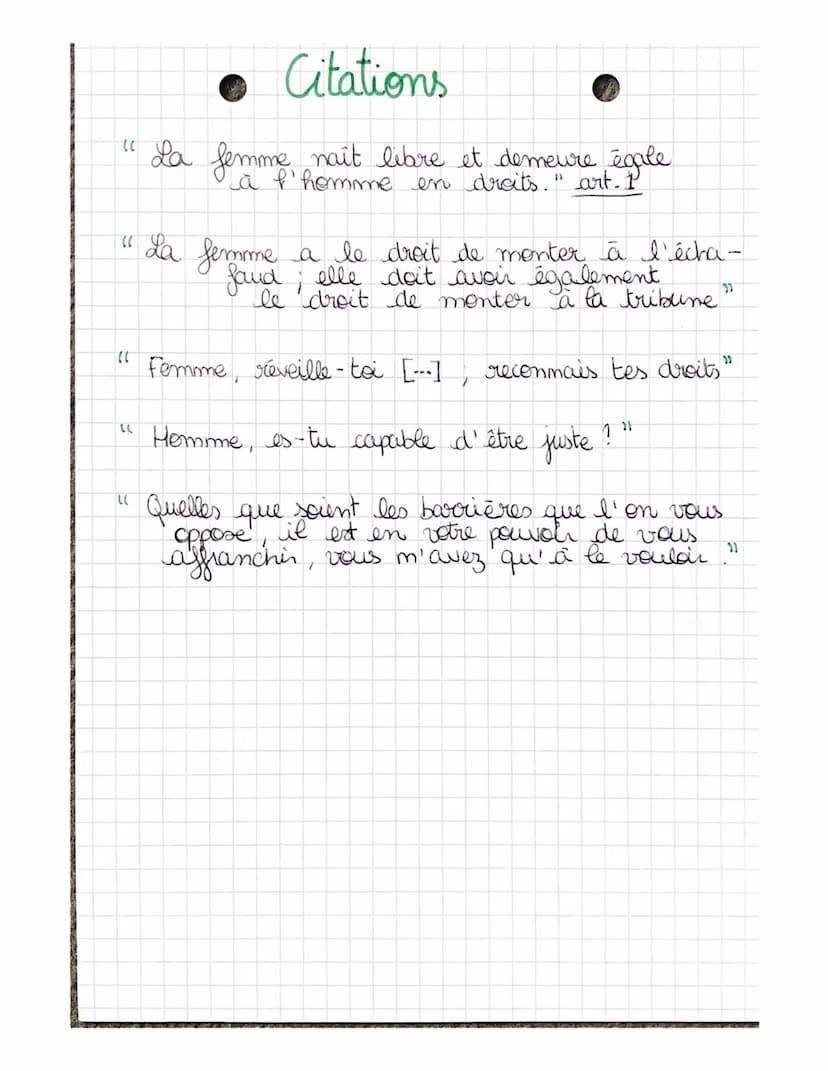 Citations
“ La femme naît libre et demeure égale
à l'homme en droits." art. 1
“ La femme a le droit de monter à l'écha-
faud ; elle doit avoir également
le droit de monter à la tribune ”
“ Femme, réveille-toi [...] ; reconnais tes droits ”
“ Homme, es-tu capable d'être juste ? ”
“ Quelles que soient les barrières que l'on vous
oppose, il est en votre pouvoir de vous
affranchir, vous n'avez qu'à le vouloir. ”